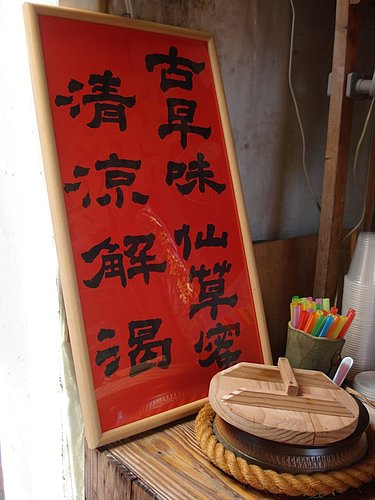 古早味仙草蜜
清涼解渴